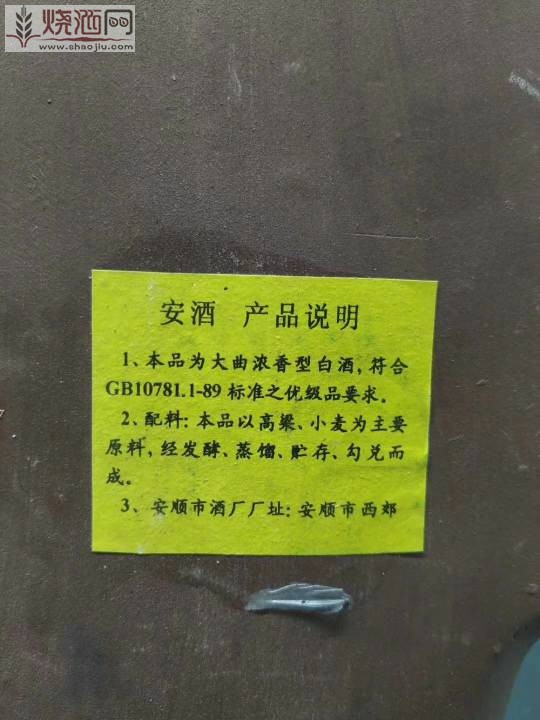 烧酒网
www.shaojiu.com
安酒 产品说明
1、本品为大曲浓香型白酒，符合
GB10781.1-89 标准之优级品要求。
2、配料：本品以高梁、小麦为主要
原料，经发酵、蒸馏、贮存、勾兑而
成。
3、安顺市酒厂厂址：安顺市西郊